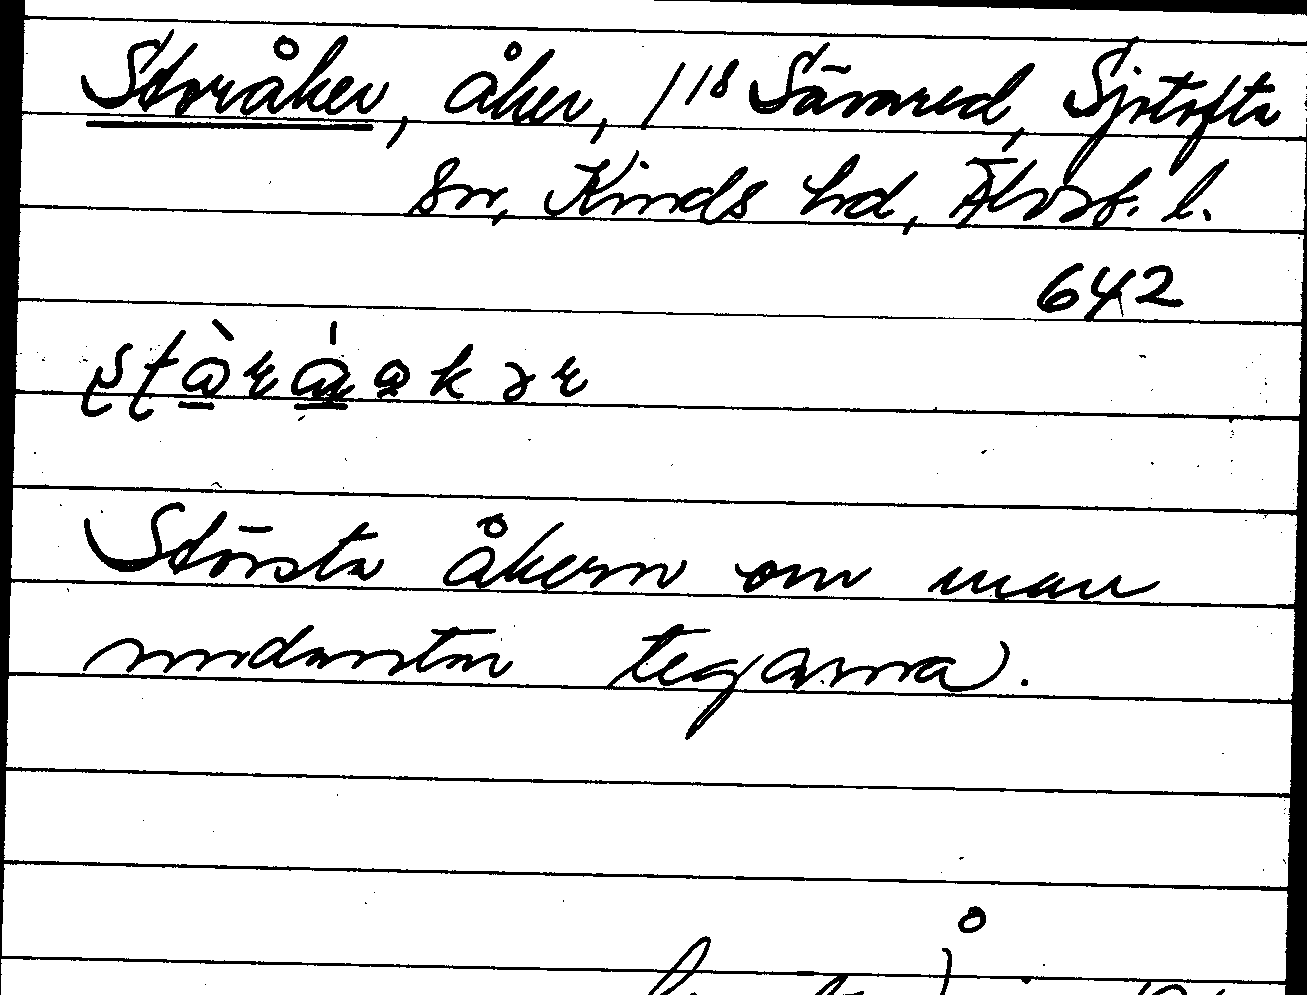 Storåker, åker, 1/18 Sävared, Sjötofta
sn, Kinds hd, Älvsb. l.
642
Största åkern om man
undantar tegarna.